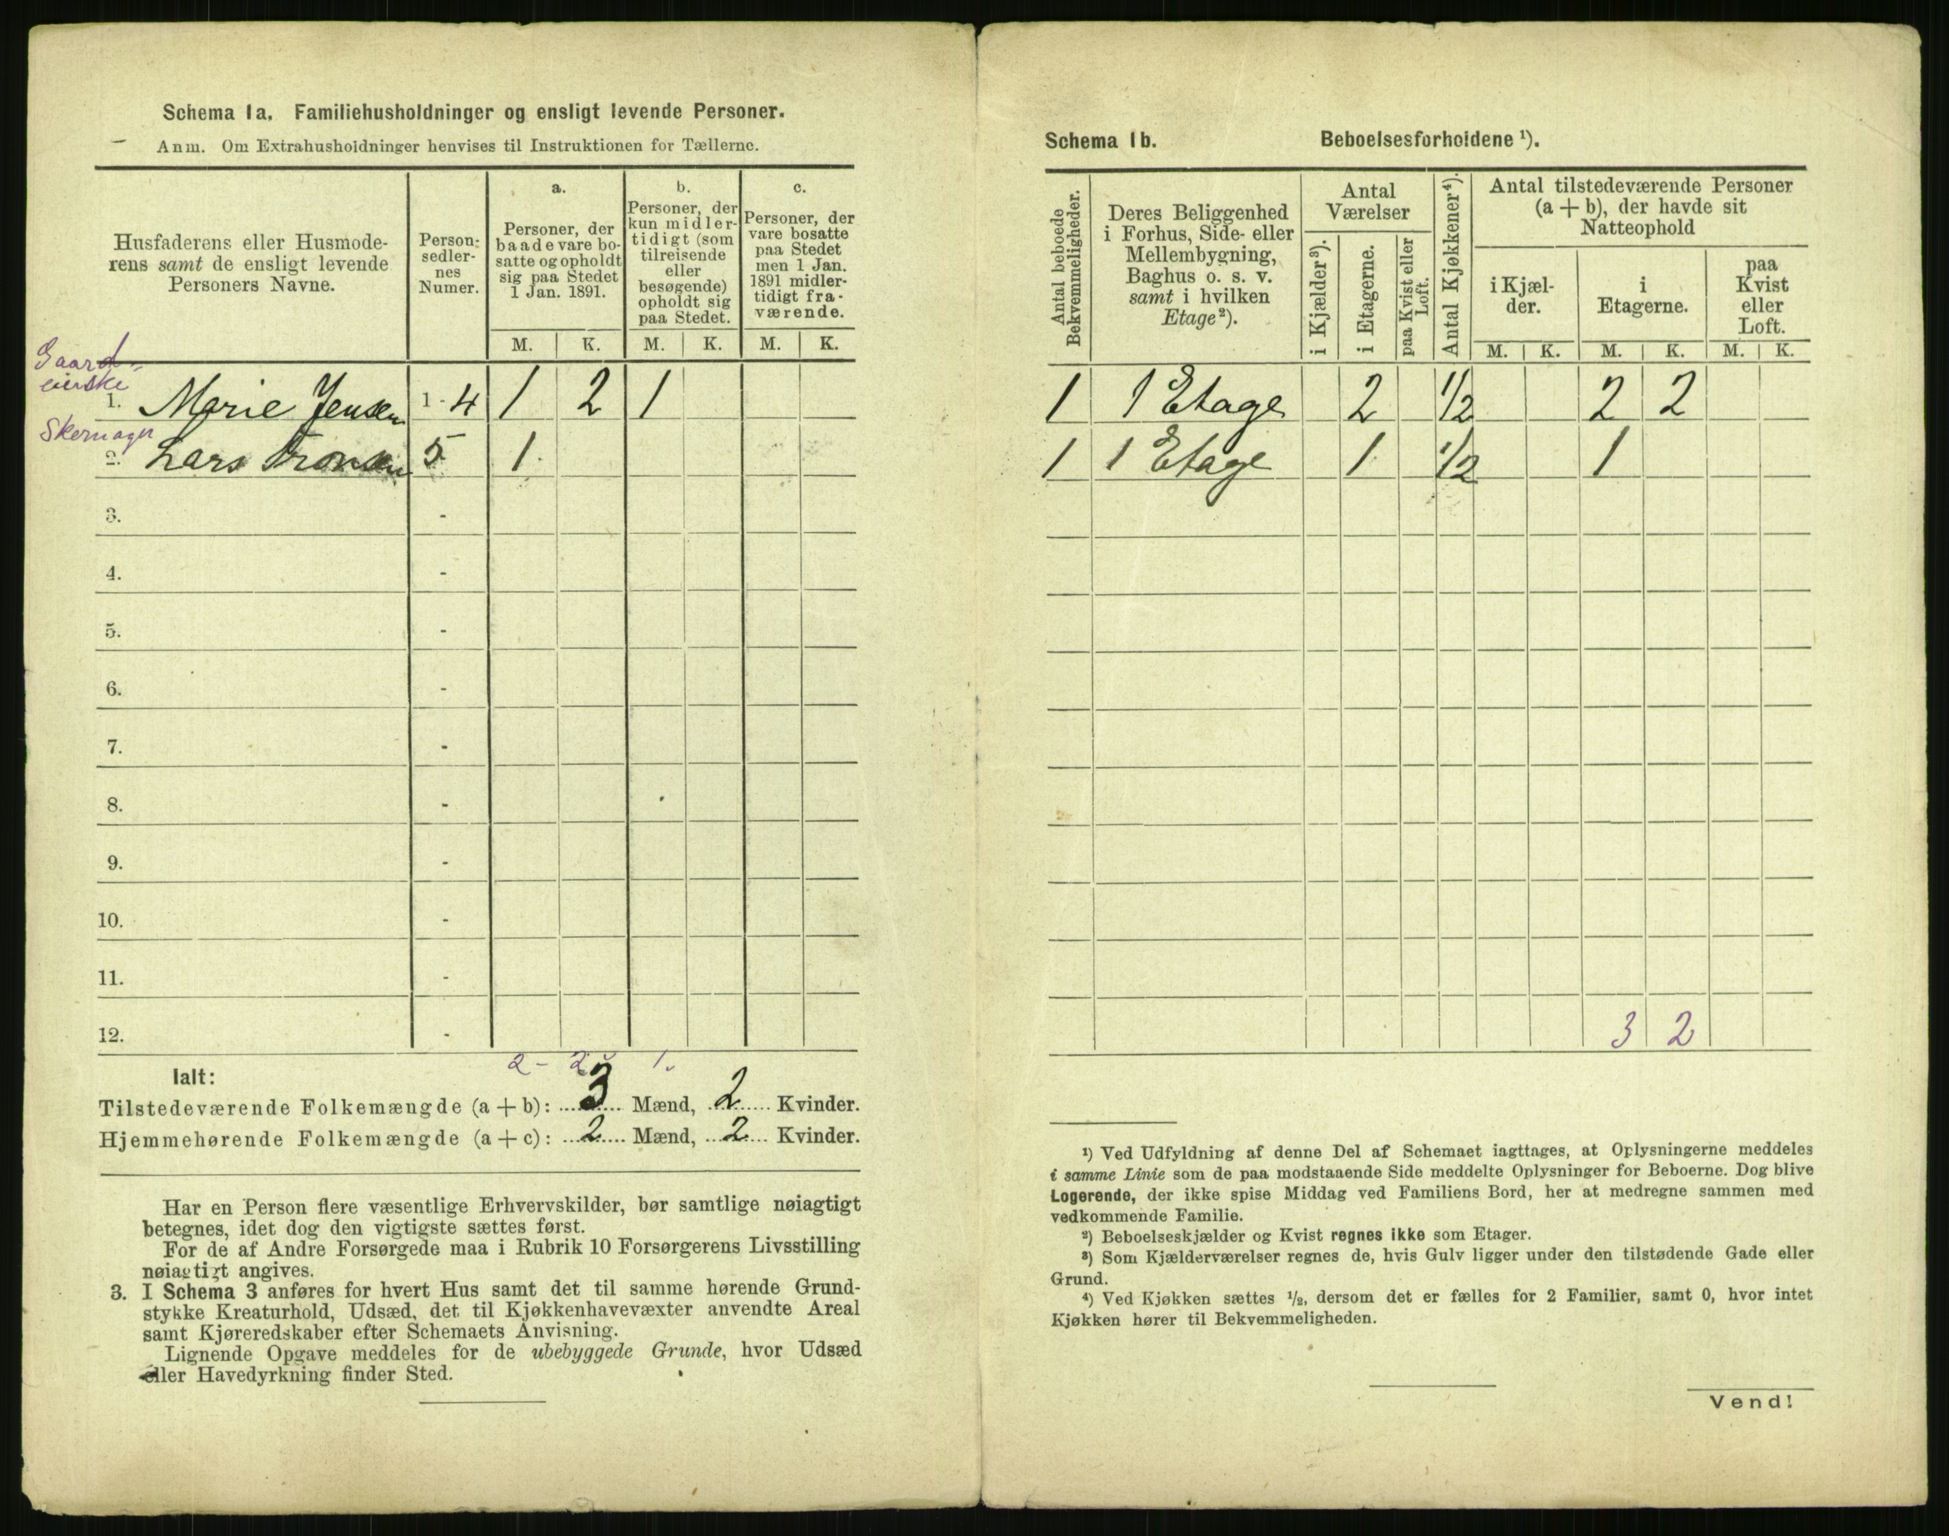 Schema 1a. Familiehusholdninger og ensligt levende Personer.
Anm. Om Extrahusholdninger henvises til Instruktionen for Tællerne.
Husfaderens eller Husmoderens samt de ensligt levende Personers Navne.
Person-
sedler-
nes
Numer.
a.
Personer, der
baade vare bo-
satte og opholdt
sig paa Stedet
1 Jan. 1891.
b.
Personer, der
kun midler-
tidigt (som
tilreisende
eller
besøgende)
opholdt sig
paa Stedet.
c.
Personer, der
vare bosatte
paa Stedet
men 1 Jan.
1891 midler-
tidigt fra-
værende.
M. K. M. K. M. K.
Gaard-
eierske
1. Marie Jensen 1-4 1 2 1
2. Lars 5 1
3. -
4. -
5. -
6. -
7. -
8. -
9. -
10. -
11. -
12. -
2 - 2 1.
Ialt:
Tilstedeværende Folkemængde (a + b): 3 Mænd, 2 Kvinder.
Hjemmehørende Folkemængde (a + c): 2 Mænd, 2 Kvinder.
Har en Person flere væsentlige Erhvervskilder, bør samtlige nøiagtigt
betegnes, idet dog den vigtigste sættes først.
For de af Andre Forsørgede maa i Rubrik 10 Forsørgerens Livsstilling
nøiagtigt angives.
3. I Schema 3 anføres for hvert Hus samt det til samme hørende Grund-
stykke Kreaturhold, Udsæd, det til Kjøkkenhavevæxter anvendte Areal
samt Kjøreredskaber efter Schemaets Anvisning.
Lignende Opgave meddeles for de ubebyggede Grunde, hvor Udsæd
eller Havedyrkning finder Sted.
Schema 1b. Beboelsesforholdene ¹).
Antal beboede
Bekvemmeligheder.
Deres Beliggenhed
i Forhus, Side- eller
Mellembygning,
Baghus o. s. v.
samt i hvilken
Etage²).
Antal
Værelser
i Kjælder³).
i Etagerne.
paa Kvist eller
Loft.
Antal Kjøkkener⁴).
Antal tilstedeværende Personer
(a + b), der havde sit
Natteophold
i Kjæl-
der.
i
Etagerne.
paa
Kvist
eller
Loft.
M. K. M. K. M. K.
1 1 Etage 2 1/2 2 2
1 1 Etage 1 1/2 1
3 2
¹) Ved Udfyldning af denne Del af Schemaet iagttages, at Oplysningerne meddeles
i samme Linie som de paa modstaaende Side meddelte Oplysninger for Beboerne. Dog blive
Logerende, der ikke spise Middag ved Familiens Bord, her at medregne sammen med
vedkommende Familie.
²) Beboelseskjælder og Kvist regnes ikke som Etager.
³) Som Kjælderværelser regnes de, hvis Gulv ligger under den tilstødende Gade eller
Grund.
⁴) Ved Kjøkken sættes ½, dersom det er fælles for 2 Familier, samt 0, hvor intet
Kjøkken hører til Bekvemmeligheden.
Vend!